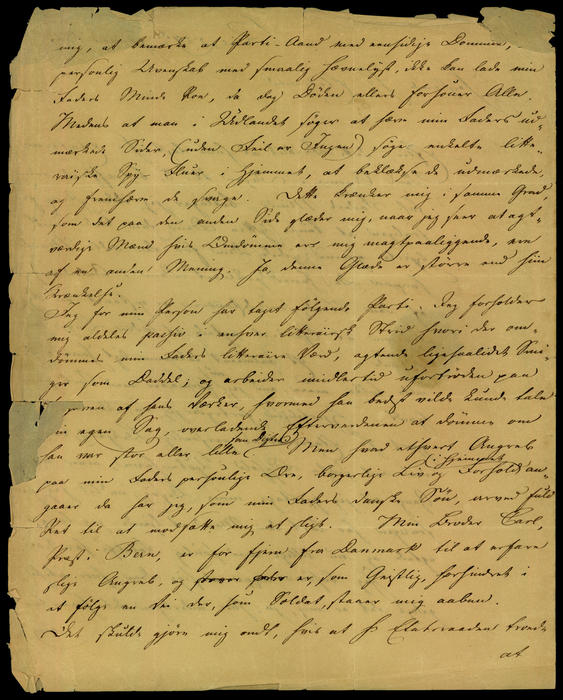 mig, at bemærke at Parti-Aand med eensidige Domme,
personlig Uvenskab med smaalig Hævnelyst, ikke kan lade min
Faders Minde Roe, da dog Døden ellers forsoner Alle.
Medens at man i Udlandet søger at hæve min Faders ud-
mærkede Sider, (uden Feil er Ingen) søge enkelte litte-
raiske Spy-Fluer i Hjemmet, at beklække de udmærkede,
og fremhæve de svage. Dette krænker mig i samme Grad,
som det paa den anden Side glæder mig, naar jeg seer at agt-
værdige Mænd hvis Omdömme ere mig magtpaaliggende, ere
af en anden Mening. Ja, denne Glæde er større end hiin
Krænkelse.
Jeg for min Person har taget følgende Parti. Jeg forholder
mig aldeles passiv i enhver litterairsk Strid hvori der om-
dömmes min Faders litteraire Værd, agtende ligesaalidet Smi-
ger som Daddel; og arbeider imidlertid ufortröden paa
af hans Værker, hvormed han bedst vilde kunde tale
sin egen Sag, overladende Efterverdenen at dömme om
han var stor eller lille som Digter. Men hvad ethvert Angreb
paa min Faders personlige Ære, borgerlige Liv og Forhold i Hjemmet an-
gaaer da har jeg, som min Faders danske Søn, arvet fuld
Ret til at modsætte mig et sligt. Min Broder Carl,
Præst i Bern, er for fjern fra Danmark til at erfare
slige Angreb, og er, som Geistlig, forhindret i
at følge en Vei der, som Soldat, staaer mig aaben.
Det skulde gjøre mig ondt, hvis at Hr Etatsraaden troede
at